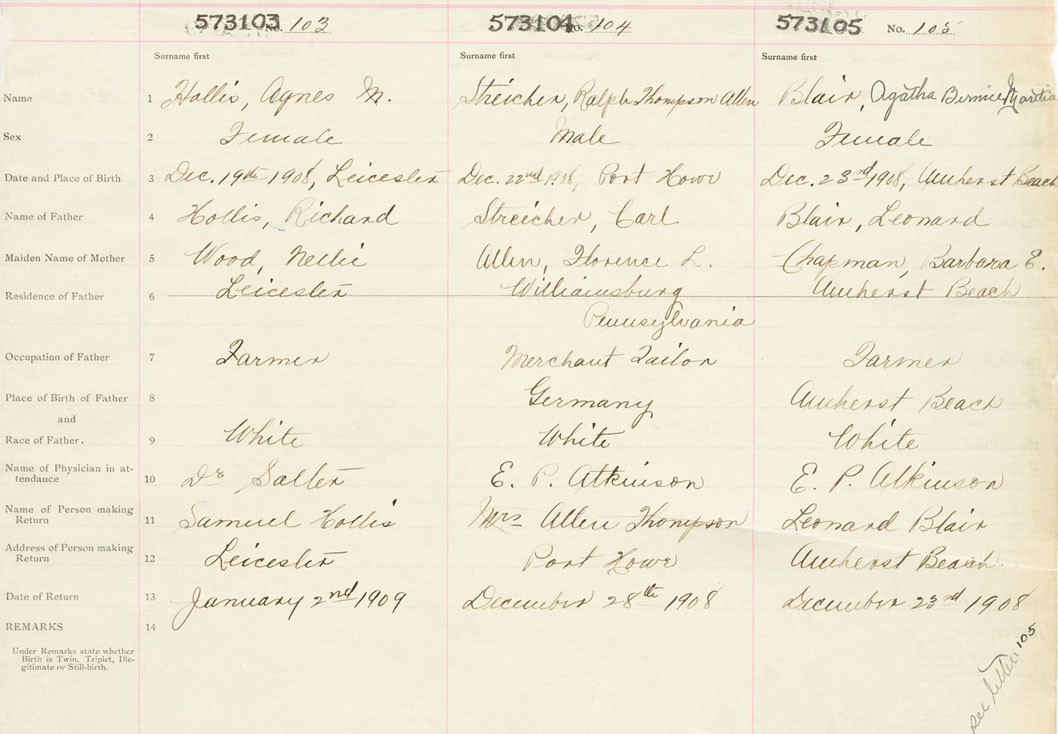 573103 No. 103 573104 No. 104 573105 No. 105
Surname first Surname first Surname first
Name 1 Hollis, Agnes M. Streicher, Ralph Thompson Allen Blair, Agatha Bernice Martia
Sex 2 Female Male Female
Date and Place of Birth 3 Dec. 19th 1908, Leicester Dec. 22nd 1908, Port Howe Dec. 23rd 1908, Amherst Beach
Name of Father 4 Hollis, Richard Streicher, Carl Blair, Leonard
Maiden Name of Mother 5 Wood, Nellie Allen, Florence L. Chapman, Barbara E.
Residence of Father 6 Leicester Williamsburg Amherst Beach
Pennsylvania
Occupation of Father 7 Farmer Merchant Tailor Farmer
Place of Birth of Father 8 Germany Amherst Beach
and
Race of Father. 9 White White White
Name of Physician in at-
tendance 10 Dr Salter E. P. Atkinson E. P. Atkinson
Name of Person making
Return 11 Samuel Hollis Mrs Allen Thompson Leonard Blair
Address of Person making
Return 12 Leicester Port Howe Amherst Beach
Date of Return 13 January 2nd 1909 December 28th 1908 December 23rd 1908
REMARKS 14
Under Remarks state whether
Birth is Twin. Triplet, Ille-
gitimate or Still-birth.
see letter 105